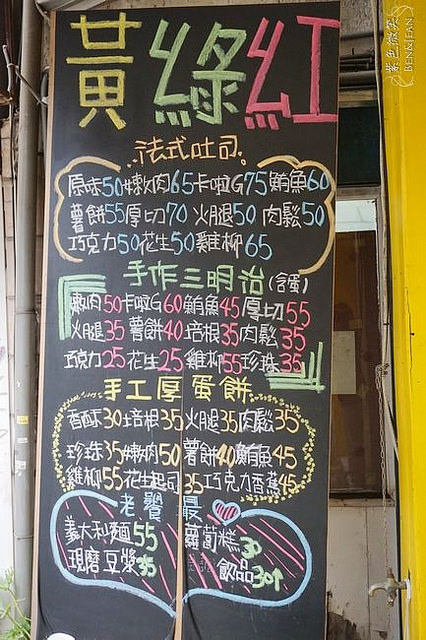 黃綠紅
法式吐司
原味50嫩肉65卡啦G75鮪魚60
薯餅55厚切70火腿50肉鬆50
巧克力50花生50雞柳65
手作三明治(含蛋)
嫩肉50卡啦G60鮪魚45厚切55
火腿35薯餅40培根35肉鬆35
巧克力25花生25雞柳55珍珠35
手工厚蛋餅
香酥30培根35火腿35肉鬆35
珍珠35嫩肉50薯餅40鮪魚45
雞柳55花生起司35巧克力香蕉45
老饕最
義大利麵55 蘿蔔糕30
現磨豆漿35 飲品30↑
紫色微笑
BEN&JEAN